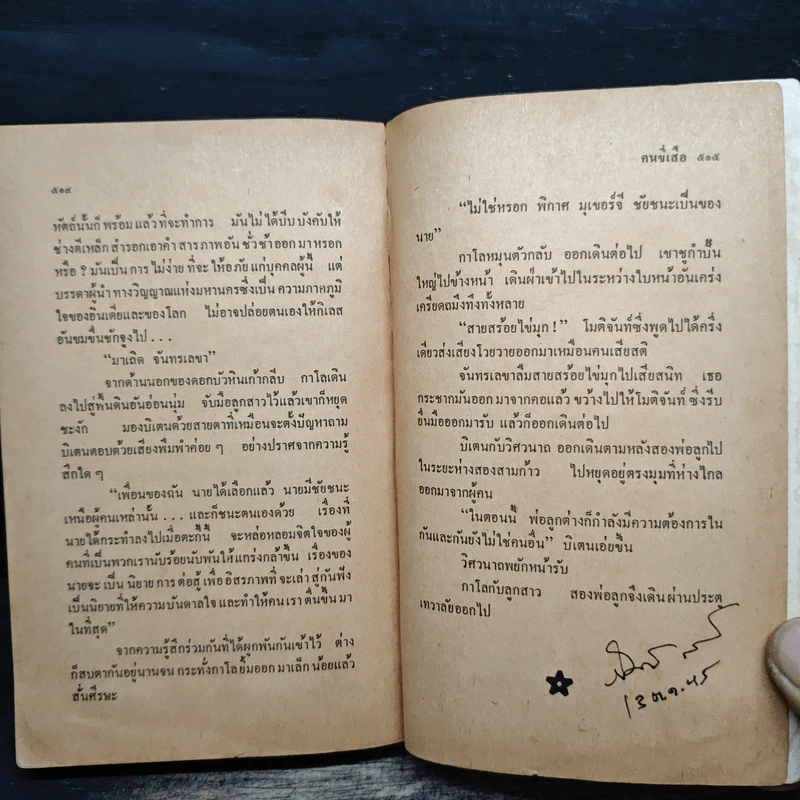 ๕๑๔
หัตถ์นั้นก็พร้อมแล้วที่จะทำการ มันไม่ได้บีบบังคับให้
ช่างตีเหล็กสำรอกเอาคำสารภาพอันชั่วช้าออกมาหรอก
หรือ ? มันเป็นการไม่ง่ายที่จะให้อภัยแก่บุคคลผู้นี้ แต่
บรรดาผู้นำทางวิญญาณแห่งมหานครซึ่งเป็นความภาคภูมิ
ใจของอินเดียและของโลก ไม่อาจปล่อยตนเองให้กิเลส
อันขมขื่นชักจูงไป . . .
“มาเถิด จันทรเลขา”
จากด้านนอกของดอกบัวหินเก้ากลีบ กาโลเดิน
ลงไปสู่พื้นดินอันอ่อนนุ่ม จับมือลูกสาวไว้แล้วเขาก็หยุด
ชะงัก มองบิเตนด้วยสายตาที่เหมือนจะตั้งปัญหาถาม
บิเตนตอบด้วยเสียงพึมพำค่อย ๆ อย่างปราศจากความรู้
สึกใด ๆ
“เพื่อนของฉัน นายได้เลือกแล้ว นายมีชัยชนะ
เหนือผู้คนเหล่านั้น . . . และก็ชนะตนเองด้วย เรื่องที่
นายได้กระทำลงไปเมื่อตะกี้นี้ จะหล่อหลอมจิตใจของผู้
คนที่เป็นพวกเรานับร้อยนับพันให้แกร่งกล้าขึ้น เรื่องของ
นายจะเป็นนิยายการต่อสู้เพื่ออิสรภาพที่จะเล่าสู่กันฟัง
เป็นนิยายที่ให้ความบันดาลใจและทำให้คนเราตื่นขึ้นมา
ในที่สุด”
จากความรู้สึกร่วมกันที่ได้ผูกพันกันเข้าไว้ ต่าง
ก็สบตากันอยู่นานจนกระทั่งกาโลยิ้มออกมาเล็กน้อยแล้ว
สั่นศีรษะ
คนขี่เสือ ๕๑๕
“ไม่ใช่หรอก พิกาศ มุเขอร์จี ชัยชนะเป็นของ
นาย”
กาโลหมุนตัวกลับ ออกเดินต่อไป เขาชูกำปั้น
ใหญ่ไปข้างหน้า เดินฝ่าเข้าไปในระหว่างใบหน้าอันเคร่ง
เครียดถมึงทึงทั้งหลาย
“สายสร้อยไข่มุก !” โมติจันท์ซึ่งพูดไปได้ครึ่ง
เดียวส่งเสียงโวยวายออกมาเหมือนคนเสียสติ
จันทรเลขาลืมสายสร้อยไข่มุกไปเสียสนิท เธอ
กระชากมันออกมาจากคอแล้ว ขว้างไปให้โมติจันท์ ซึ่งรีบ
ยื่นมือออกมารับ แล้วก็ออกเดินต่อไป
บิเตนกับวิศวนาถ ออกเดินตามหลังสองพ่อลูกไป
ในระยะห่างสองสามก้าว ไปหยุดอยู่ตรงมุมที่ห่างไกล
ออกมาจากผู้คน
“ในตอนนี้ พ่อลูกต่างก็กำลังมีความต้องการใน
กันและกันยังไม่ใช่คนอื่น” บิเตนเอ่ยขึ้น
วิศวนาถพยักหน้ารับ
กาโลกับลูกสาว สองพ่อลูกจึงเดินผ่านประตู
เทวาลัยออกไป